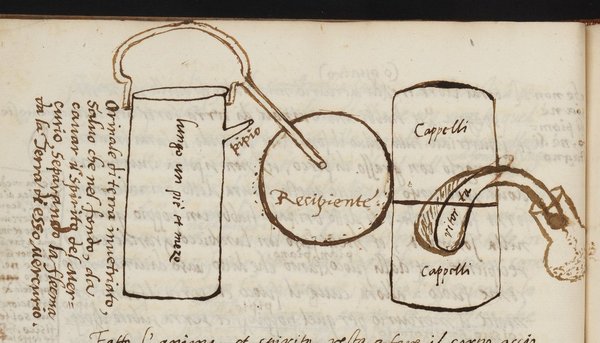 Orinale di terra inuetriato,
Saluo che nel fondo, da
cauar li spiriti del Mer-
curio, Separando la flema
da la Terra d'esso Mercurio.
lungo un piè et mezo
pipio
Recipiente
Cappelli
Cappelli
Fatto l'anima, et spirito, resta a fare il corpo, acciò